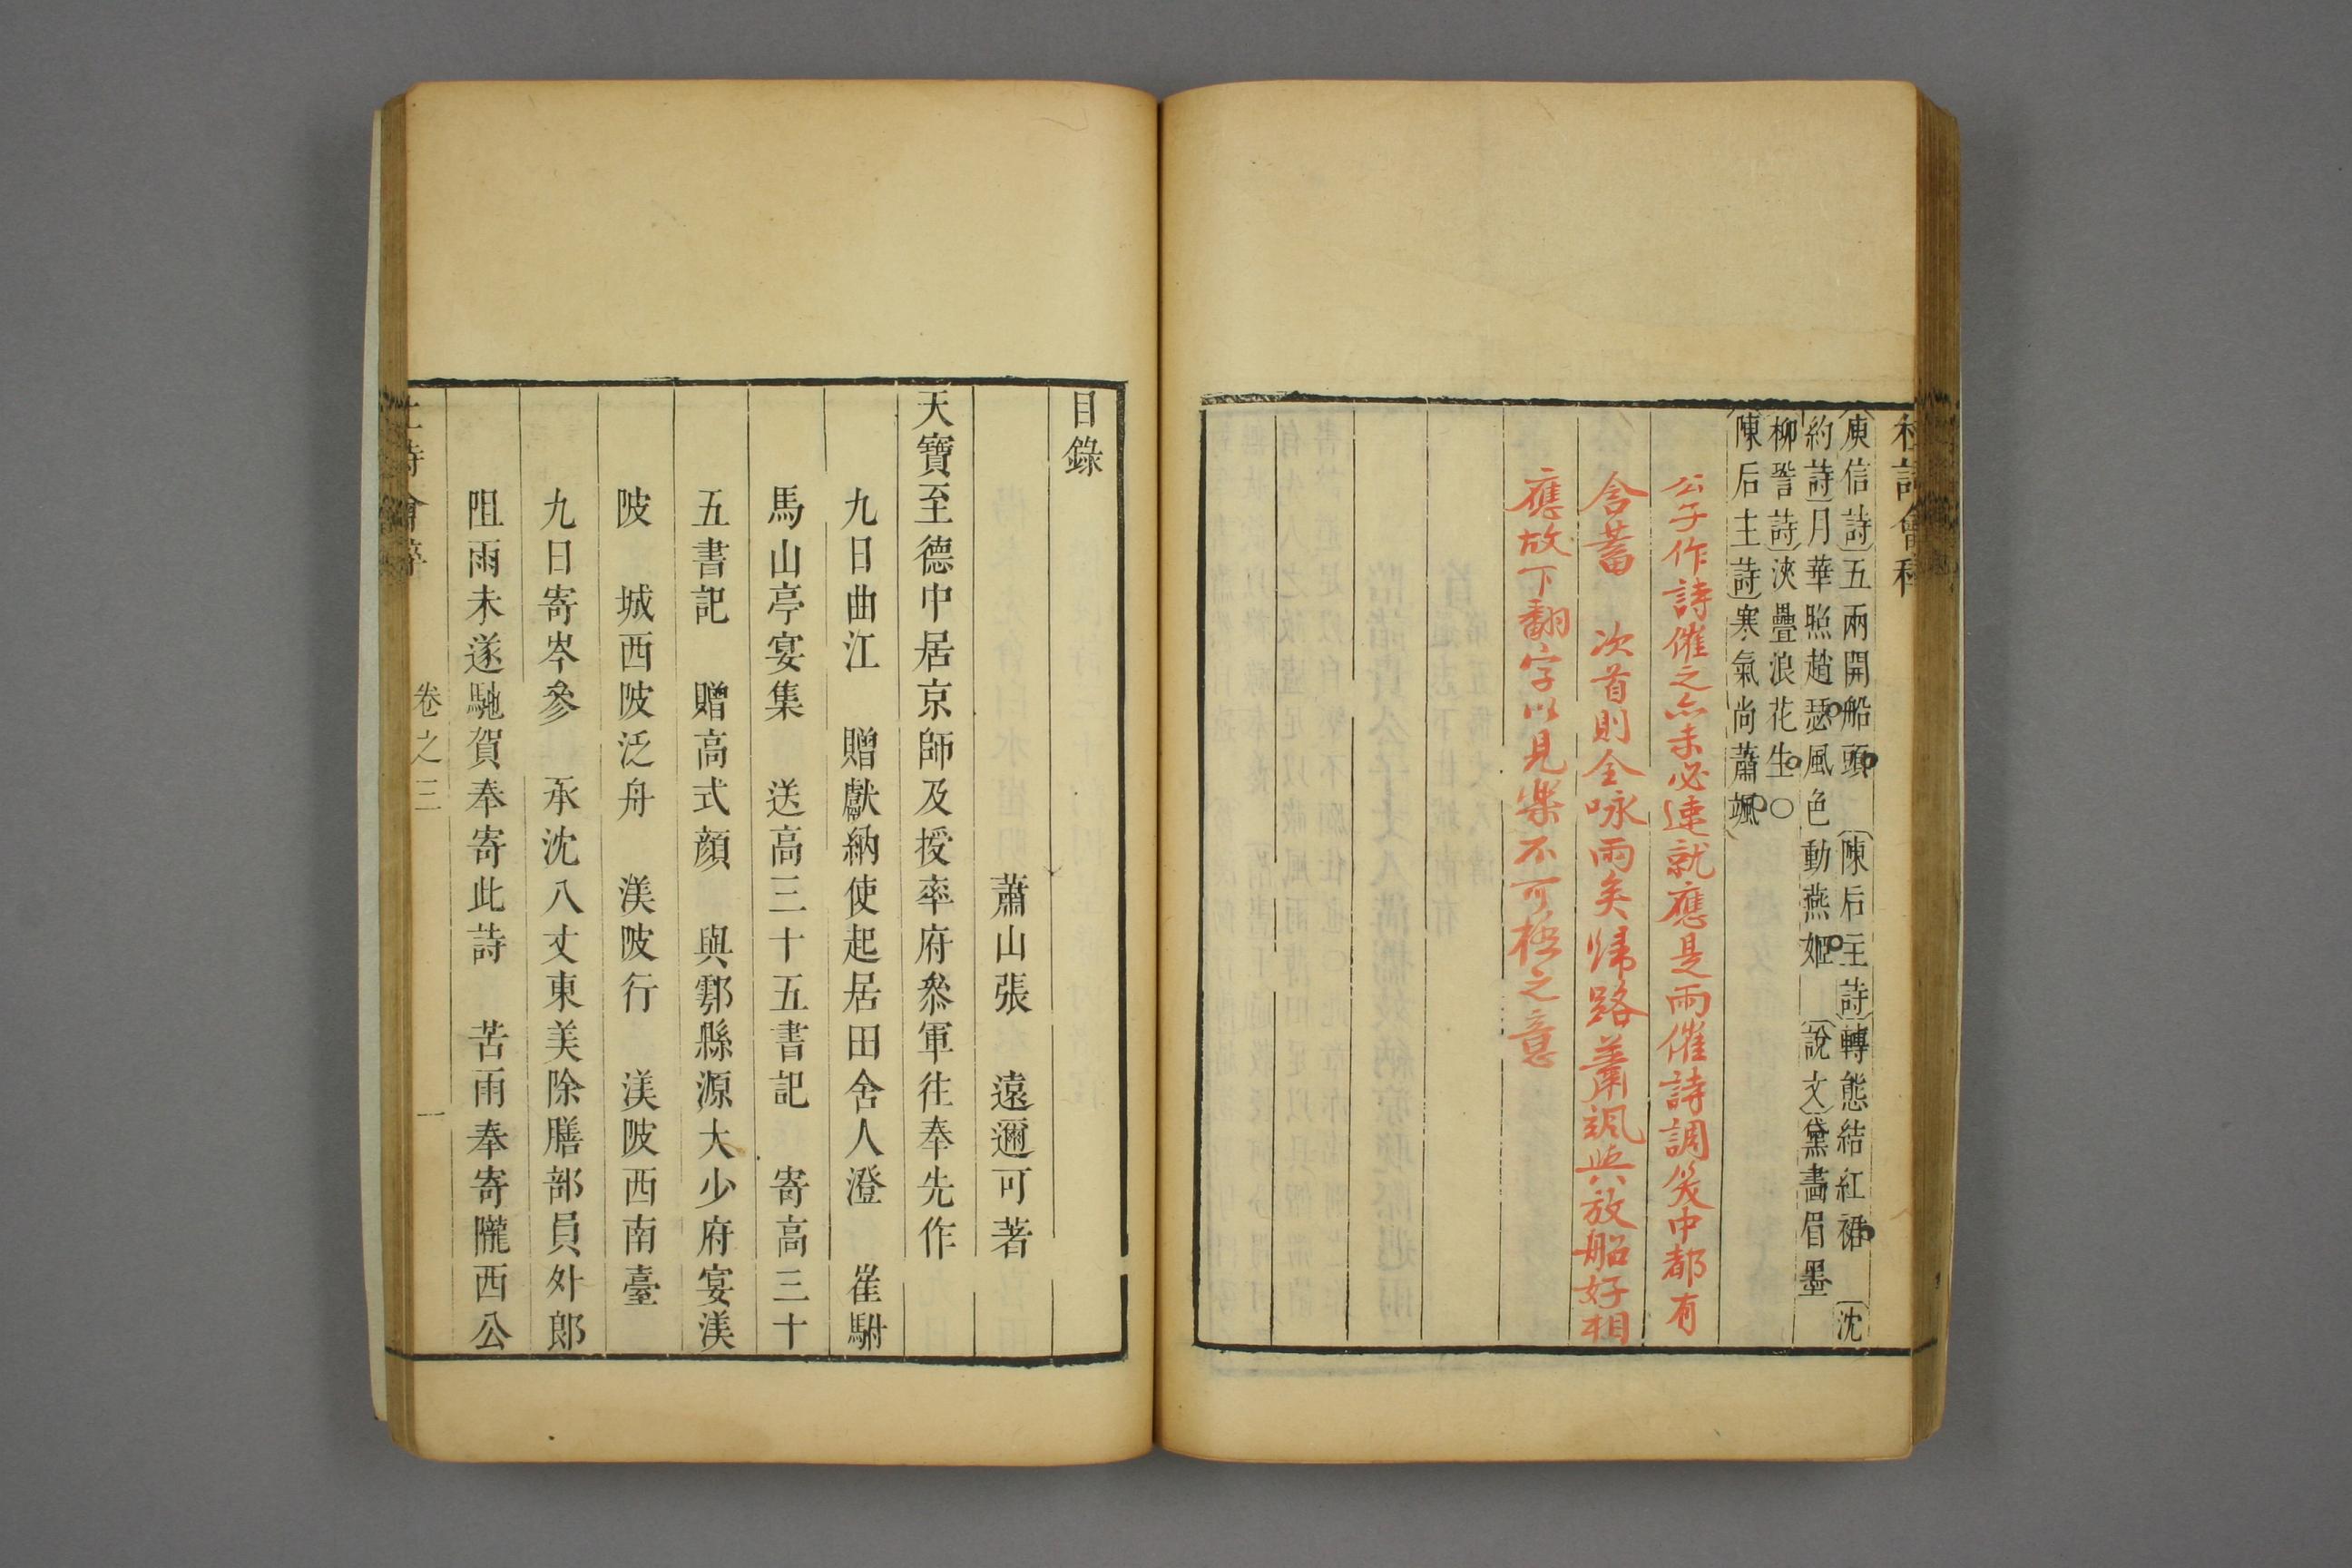 庾信詩五兩開船頭 陳后主詩轉態結紅裙 沈
約詩月華照趙瑟風色動燕姬 說文黛畫眉墨
柳惲詩浹疊浪花生〇
陳后主詩寒氣尚蕭颯
公子作詩催之亦未必速就應是雨催詩調笑中都有
含蓄 次首則全咏雨矣歸路蕭颯與放船好相
應故下翻字以見樂不可極之意
目錄
蕭山張 遠邇可著
天寶至德中居京師及授率府叅軍往奉先作
九日曲江 贈獻納使起居田舍人澄 崔駙
馬山亭宴集 送高三十五書記 寄高三十
五書記 贈高式顏 與鄠縣源大少府宴渼
陂 城西陂泛舟 渼陂行 渼陂西南臺
九日寄岑參 承沈八丈東美除膳部員外郎
阻雨未遂馳賀奉寄此詩 苦雨奉寄隴西公
卷之三 一